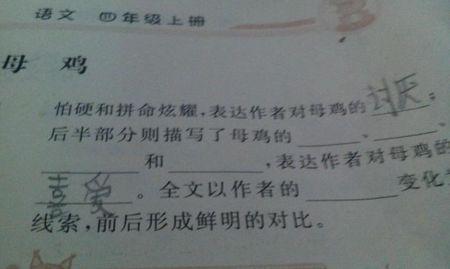 语文 四年级上册
母 鸡
怕硬和拼命炫耀,表达作者对母鸡的讨厌;
后半部分则描写了母鸡的______、______、
______和______,表达作者对母鸡的
喜爱。全文以作者的______变化
线索,前后形成鲜明的对比。